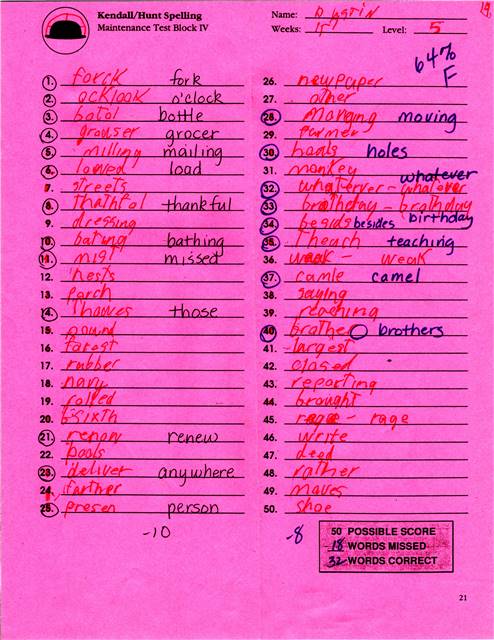 Kendall/Hunt Spelling
Maintenance Test Block IV
Name: Dustin
Weeks: 15 Level: 5
19.
64%
F
1. forck fork
2. ocklook o'clock
3. botol bottle
4. grouser grocer
5. milling mailing
6. lowed load
7. streets
8. thathful thankful
9. dressing
10. bating bathing
11. mist missed
12. nests
13. porch
14. Thowes those
15. pound
16. forest
17. rubber
18. navy
19. rolled
20. sixth
21. renoy renew
22. pools
23. deliver anywhere
24. further
25. presen person
-10
26. newpaper
27. other
28. Moriging moving
29. farmer
30. hools holes
31. monkey
32. whatferver - whatever whatever
33. brathday - brathday birthday
34. besids besides
35. Theach teaching
36. weak - weak
37. camle camel
38. saying
39. reaching
40. brother brothers
41. largest
42. closed
43. reporting
44. brought
45. rage - rage
46. write
47. deed
48. rather
49. moves
50. shoe
-8
50 POSSIBLE SCORE
-18 WORDS MISSED
32 WORDS CORRECT
21